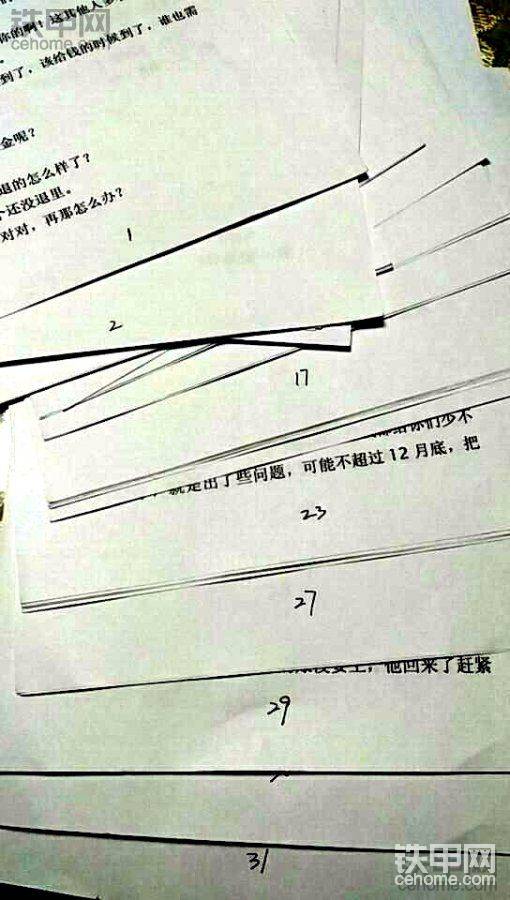 铁甲网
cehome.com
你的啊；这其他人
到了，该给钱的时候到了，谁也需
金呢？
退的怎么样了？
个还没退里。
对对，再那怎么办？
1
2
17
给你们少不
就是出了些问题，可能不超过 12 月底，把
23
27
上，他回来了赶紧
29
31
铁甲网
cehome.com